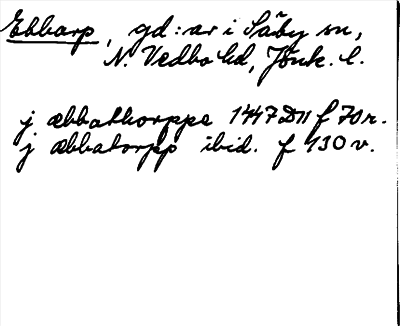 Ebbarp, gd:ar i Säby sn,
N. Vedbo hd, Jönk. l.
j æbbathorppe 1447 D11 f 70r.
j æbbatorpp ibid. f 130v.